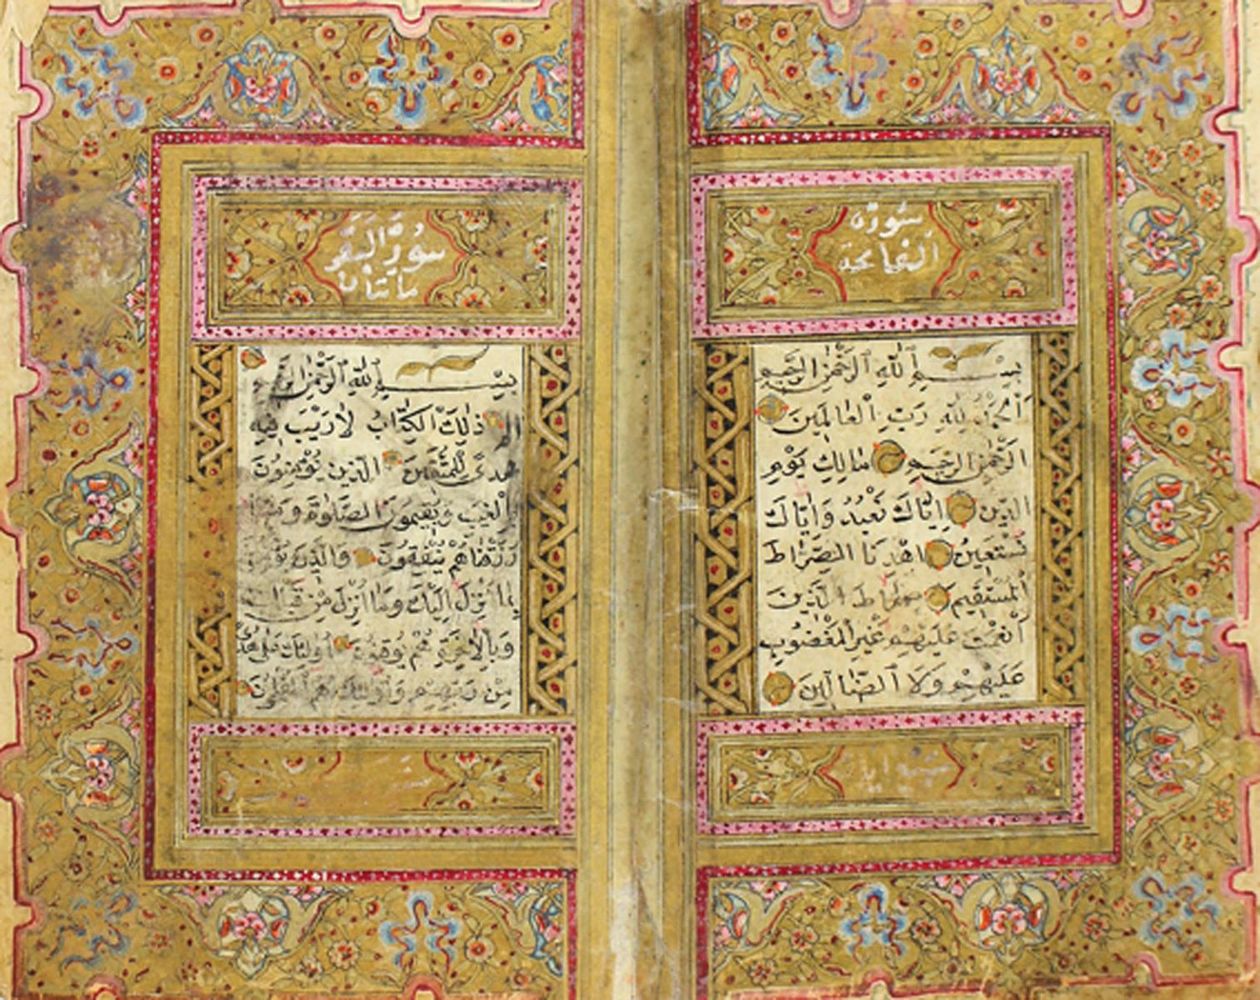 سورة
الفاتحة
بِسْمِ ٱللّٰهِ ٱلرَّحْمٰنِ ٱلرَّحِيمِ
اَلْحَمْدُ لِلّٰهِ رَبِّ ٱلْعَالَمِينَ
اَلرَّحْمٰنِ الرَّحِيمِ مَالِكِ يَوْمِ
الدِّينِ اِيَّاكَ نَعْبُدُ وَاِيَّاكَ
نَسْتَعِينُ اِهْدِنَا الصِّرَاطَ
الْمُسْتَقِيمَ صِرَاطَ الَّذِينَ
اَنْعَمْتَ عَلَيْهِمْ غَيْرِ الْمَغْضُوبِ
عَلَيْهِمْ وَلَا ٱلضَّالِّينَ
سورة البقر
مائتان
بِسْمِ ٱللّٰهِ ٱلرَّحْمٰنِ ٱلرَّحِيمِ
الم ذٰلِكَ الْكِتَابُ لَا رَيْبَ فِيهِ
هُدًى لِلْمُتَّقِينَ الَّذِينَ يُؤْمِنُونَ
بِالْغَيْبِ وَيُقِيمُونَ الصَّلٰوةَ وَمِمَّا
رَزَقْنَاهُمْ يُنْفِقُونَ وَالَّذِينَ يُؤْمِنُونَ
بِمَا اُنْزِلَ اِلَيْكَ وَمَا اُنْزِلَ مِنْ قَبْلِكَ
وَبِالْاٰخِرَةِ هُمْ يُوقِنُونَ اُولٰئِكَ عَلٰى هُدًى
مِنْ رَبِّهِمْ وَاُولٰئِكَ هُمُ الْمُفْلِحُونَ